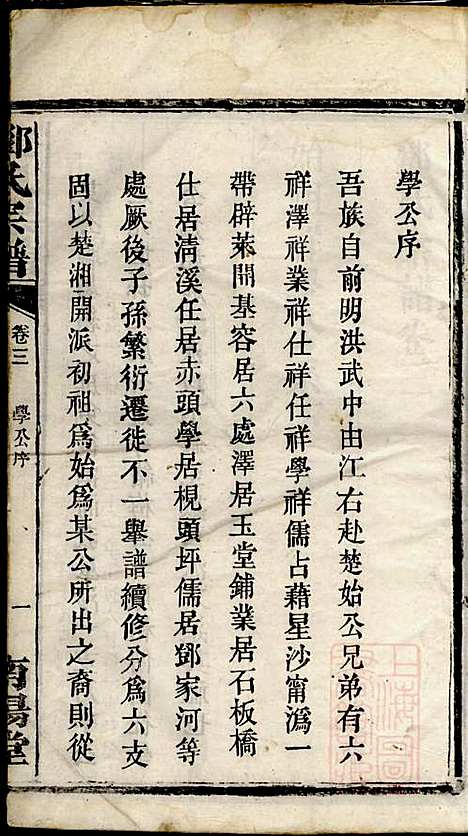 學公序
吾族自前明洪武中由江右赴楚始公兄弟有六
祥澤祥業祥仕祥任祥學祥儒占藉星沙甯潙一
帶辟萊開基容居六處澤居玉堂鋪業居石板橋
仕居清溪任居赤頭學居梘頭坪儒居鄧家河等
處厥後子孫繁衍遷徙不一舉譜續修分爲六支
固以楚湘開派初祖爲始爲某公所出之裔則從
鄧氏宗譜
卷三
學公序
一
南陽堂